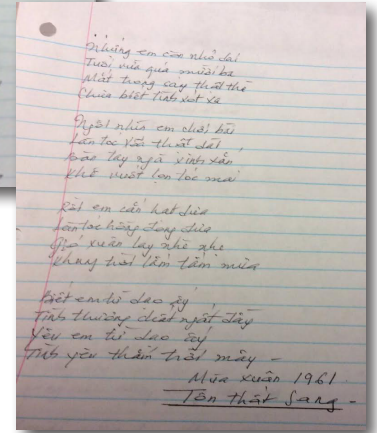 Nhưng em còn nhỏ dại
Tuổi vừa quá mười ba
Mắt trong say thơ
Chưa biết tình xót xa
Ngồi nhìn em chải
Làn tóc dài
Bàn tay ngà xinh xắn
Khẽ vuốt lọn tóc mai
Rồi em cắn hạt dưa
Làn tóc đong đưa
Gió xuân lay nhè nhẹ
Khung trời lấm tấm mưa
Biết em từ dạo ấy
Tình thương ngất đầy
Yêu em từ dạo ấy
Tình yêu thắm trời mây -
Mùa xuân 1961.
Tôn thất Sang -